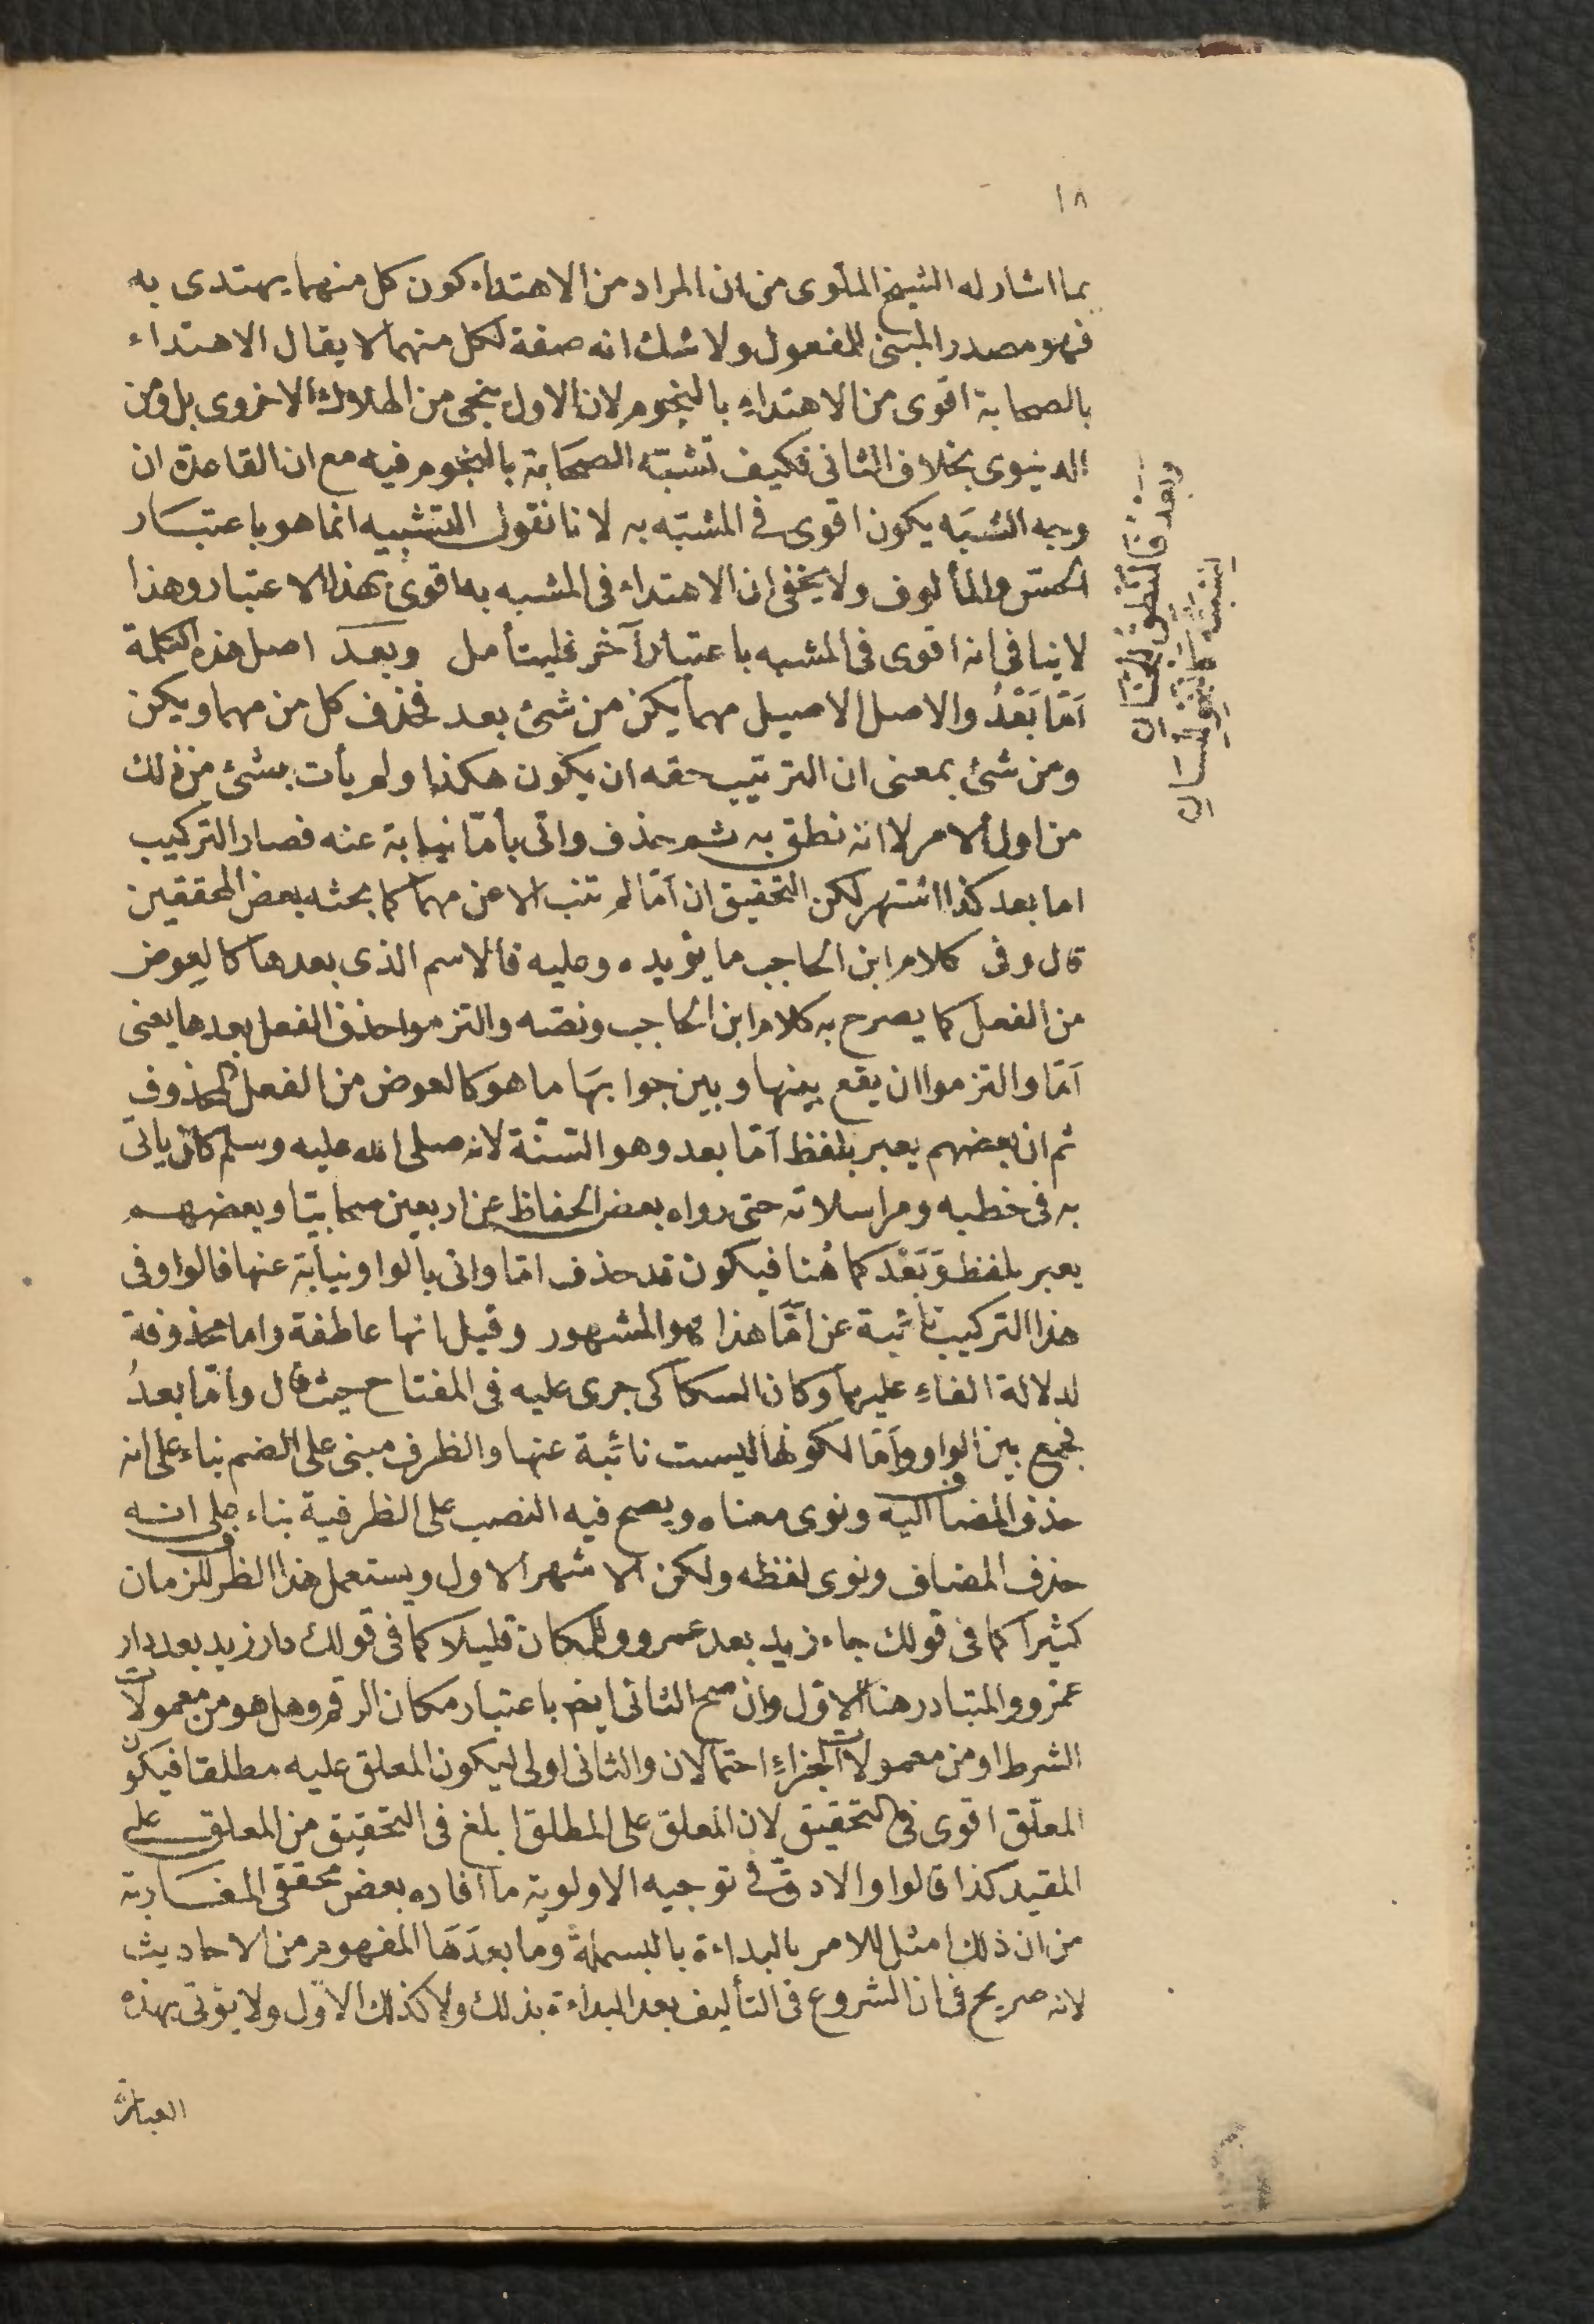 ١٨
بما اشار له الشيخ الملوى من ان المراد من الاهتداء كون كل منهما يهتدى به
فهو مصدر المبنى للمفعول ولا شك انه صفة لكل منهما لا يقال الاهتداء
بالصحابة اقوى من الاهتداء بالنجوم لان الاول ينجى من الهلاك الاخروى بل ومن
الدنيوى بخلاف الثانى فكيف تشبّه الصحَابة بالنجوم فيه مع ان القاعدة ان
وجه الشبَه يكون اقوى فى المشبّه به لا نا نقول التشبيه انما هو باعتبَار
الحسّ والمألوف ولا يخفى ان الاهتداء فى المشبه به اقوى بهذا الاعتبار وهذا
لا ينافى انه اقوى فى المشبه باعتبار آخر فليتأمل وبعدَ اصل هذه الكلمة
اَمّا بَعْدُ والاصل الاصيل مهما يكن من شئ بعد فحذف كل من مهما ويكن
ومن شئ بمعنى ان الترتيب حقه ان يكون هكذا ولم يأت بشئ من ذلك
من اول الامر لا انه نطق به ثم حذف واتى بأمّا نيابة عنه فصار التركيب
اما بعد كذا اشتهر لكن التحقيق ان اَمّا لم تنب الا عن مهما كما بحثه بعض المحققين
قال وفى كلام ابن الحاجب ما يؤيده وعليه فالاسم الذى بعدها كالعوض
من الفعل كما يصرح به كلام ابن الحاجب ونصّه والتزموا حذف الفعل بعدها يعنى
اَمّا والتزموا ان يقع بينها وبين جوابهَا ما هو كالعوض من الفعل المحذوف
ثم ان بعضهم يعبر بلفظ اَمّا بعد وهو السّنّة لانه صلى الله عليه وسلم كان ياتى
به فى خطبه ومراسلاته حتى رواه بعض الحفاظ عن اربعين صحابيّا وبعضهم
يعبر بلفظ وَبَعْدَ كما هُنا فيكون قد حذف امّا واتى بالواو نيابة عنها فالواو فى
هذا التركيب نائبة عن اَمَّا هذا هو المشهور وقيل انها عاطفة واما محذوفة
لدلالة الفاءِ عليها وكان السكاكى جرى عليه فى المفتاح حيث قال وأمّا بعدُ
فجمع بين الواو واَمّا لكونها ليست نائبة عنها والظرف مبنى على الضم بناء على انه
حذف المضاف اليه ونوى معناه ويصح فيه النصب على الظرفية بناء على انه
حذف المضاف ونوى لفظه ولكن الاشهر الاول ويستعمل هذا الظرف للزمان
كثيرا كما فى قولك جاء زيد بعد عمرو وللمكان قليلا كما فى قولك دار زيد بعد دار
عمرو والمتبادر هنا الاوّل وان صح الثانى ايضا باعتبار مكان الرقم وهل هو من معمولات
الشرط او من معمولات الجزاءِ احتمالان والثانى اولى ليكون المعلق عليه مطلقا فيكون
المعلّق اقوى فى التحقيق لان المعلق على المطلق ابلغ فى التحقيق من المعلق على
المقيد كذا قالوا والادقّ فى توجيه الاولوية ما افاده بعض محققى المغاربة
من ان ذلك امثل للامر بالبداءة بالبسملة وما بعدَهَا المفهوم من الاحاديث
لانه صريح فى ان الشروع فى التأليف بعد البداءة بذلك ولا كذلك الاوّل ولا يؤتى بهذه
العبارة
وبعد فالمنطق للجنان
نسبته كالنحو للسان